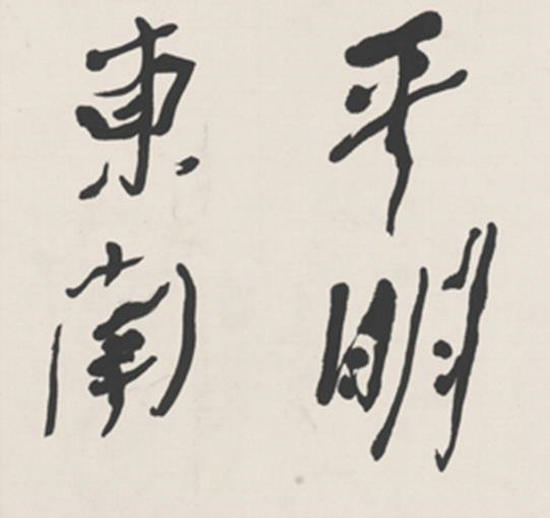 平明
東南